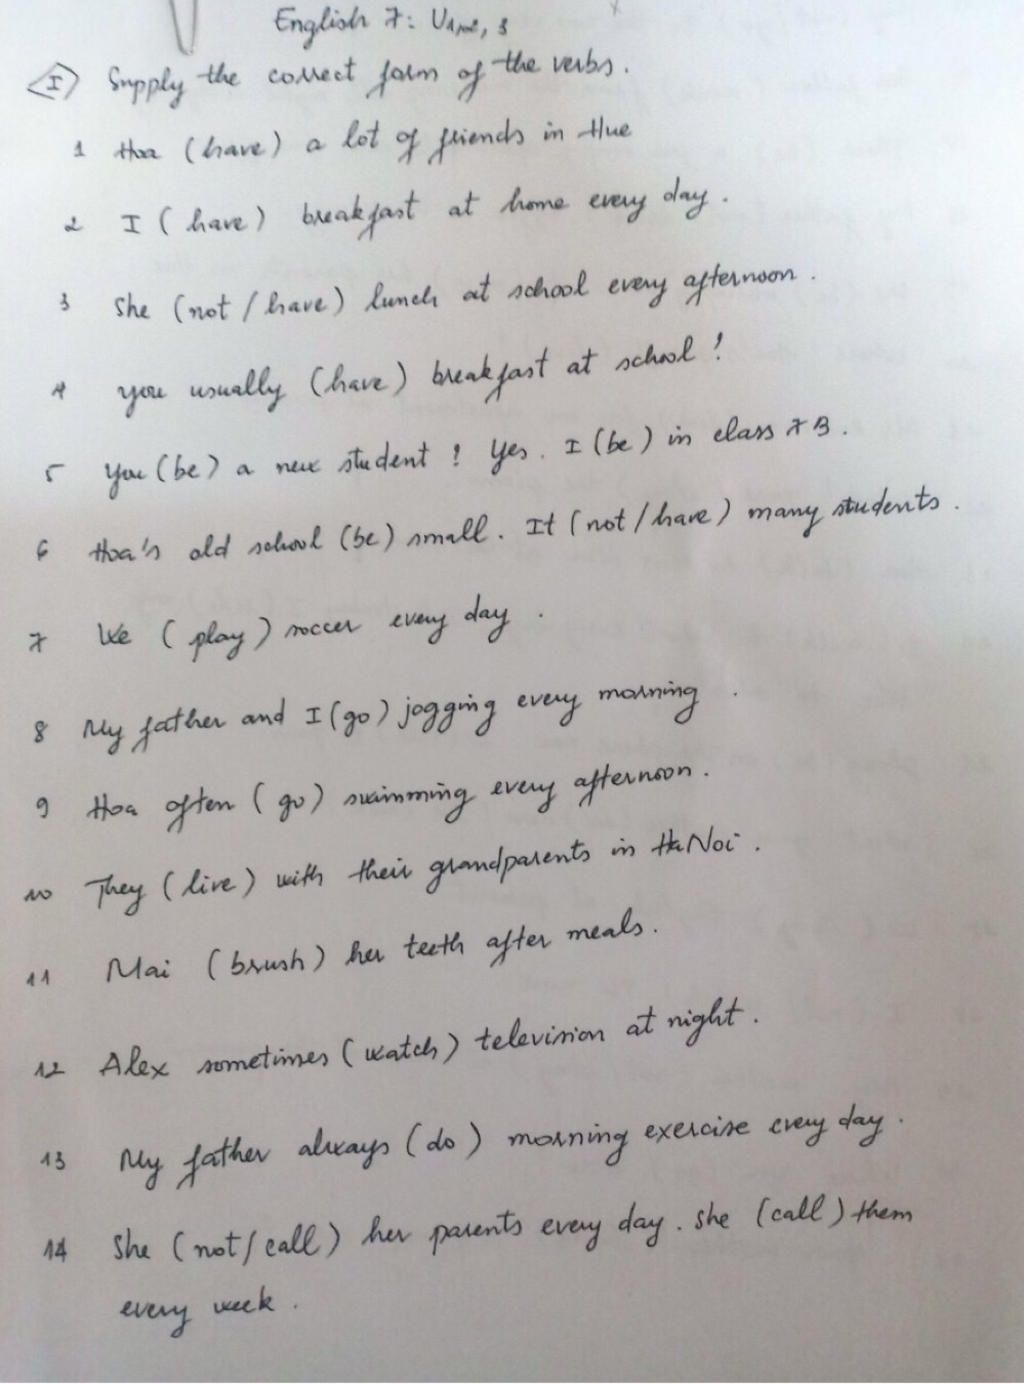 English 7: U1,2, 3
I Supply the correct form of the verbs.
1 Hoa (have) a lot of friends in Hue
2 I (have) breakfast at home every day.
3 She (not/have) lunch at school every afternoon.
4 you usually (have) breakfast at school?
5 You (be) a new student? Yes. I (be) in class 7B.
6 Hoa's old school (be) small. It (not/have) many students.
7 We (play) soccer every day.
8 My father and I (go) jogging every morning.
9 Hoa often (go) swimming every afternoon.
10 They (live) with their grandparents in Ha Noi.
11 Mai (brush) her teeth after meals.
12 Alex sometimes (watch) television at night.
13 My father always (do) morning exercise every day.
14 She (not/call) her parents every day. She (call) them
every week.